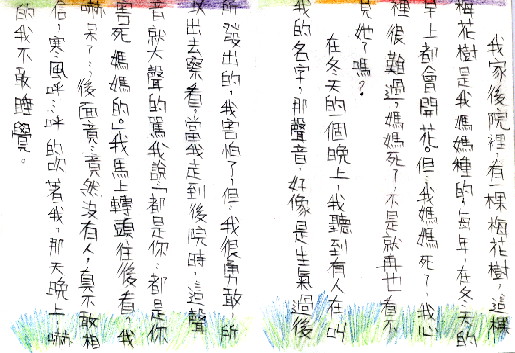 我家後院裡,有一棵梅花樹,這棵
梅花樹是我媽媽種的,每年,在冬天的
早上都會開花。但,我媽媽死了,我心
裡很難過,媽媽死了,不是就再也看不
見她了嗎?
在冬天的一個晚上,我聽到有人在叫
我的名字,那聲音,好像是生氣過後
所發出的,我害怕了,但,我很勇敢,所
以出去察看,當我走到後院時,這聲
音就大聲的罵我說「都是你、都是你
害死媽媽的。」我馬上轉頭往後看,我
嚇呆了…後面竟…竟然沒有人,真不敢相
信,寒風呼…呼的吹著我,那天晚上嚇
的我不敢睡覺。